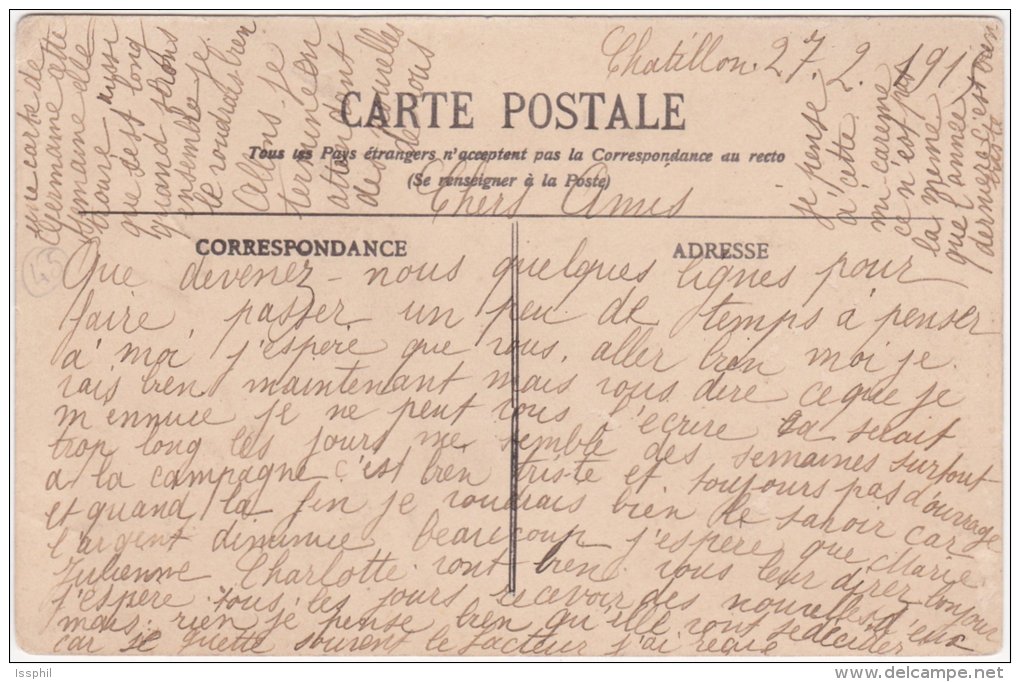 Chatillon. 27. 2. 1915
CARTE POSTALE
Tous les Pays étrangers n'acceptent pas la Correspondance au recto
(Se renseigner à la Poste)
Chers Amis
CORRESPONDANCE
ADRESSE
45
Que devenez-nous quelques lignes pour
faire, passer un peu de temps à penser
à moi j'espere que vous, aller bien moi je
vais bien maintenant mais vous dire ce que je
m'ennuie je ne peut vous l'ecrire sa serait
trop long les jours me semble des semaines surtout
a la campagne c'est bien triste et toujours pas d'ouvrage
et quand la fin je voudrais bien le savoir car
l'argent diminue beaucoup j'espere que Marie
Julienne Charlotte vont bien vous leur direz bonjour
j'espere tous les jours recevoir des nouvelles d'eux
mais rien je pense bien qu'elle vont se decider
car je guette souvent le facteur j'ai reçue
une carte de
Germaine cette
semaine elle
trouve aussi
que s'est long
quand serons
ensemble je
le voudrais bien
Allons je
termine en
attendant
des nouvelles
de vous
je pense
à cette
mi careme
ce n'est pas
la meme
que l'année
derniere c'est bien
triste
Issphil
delcampe.net